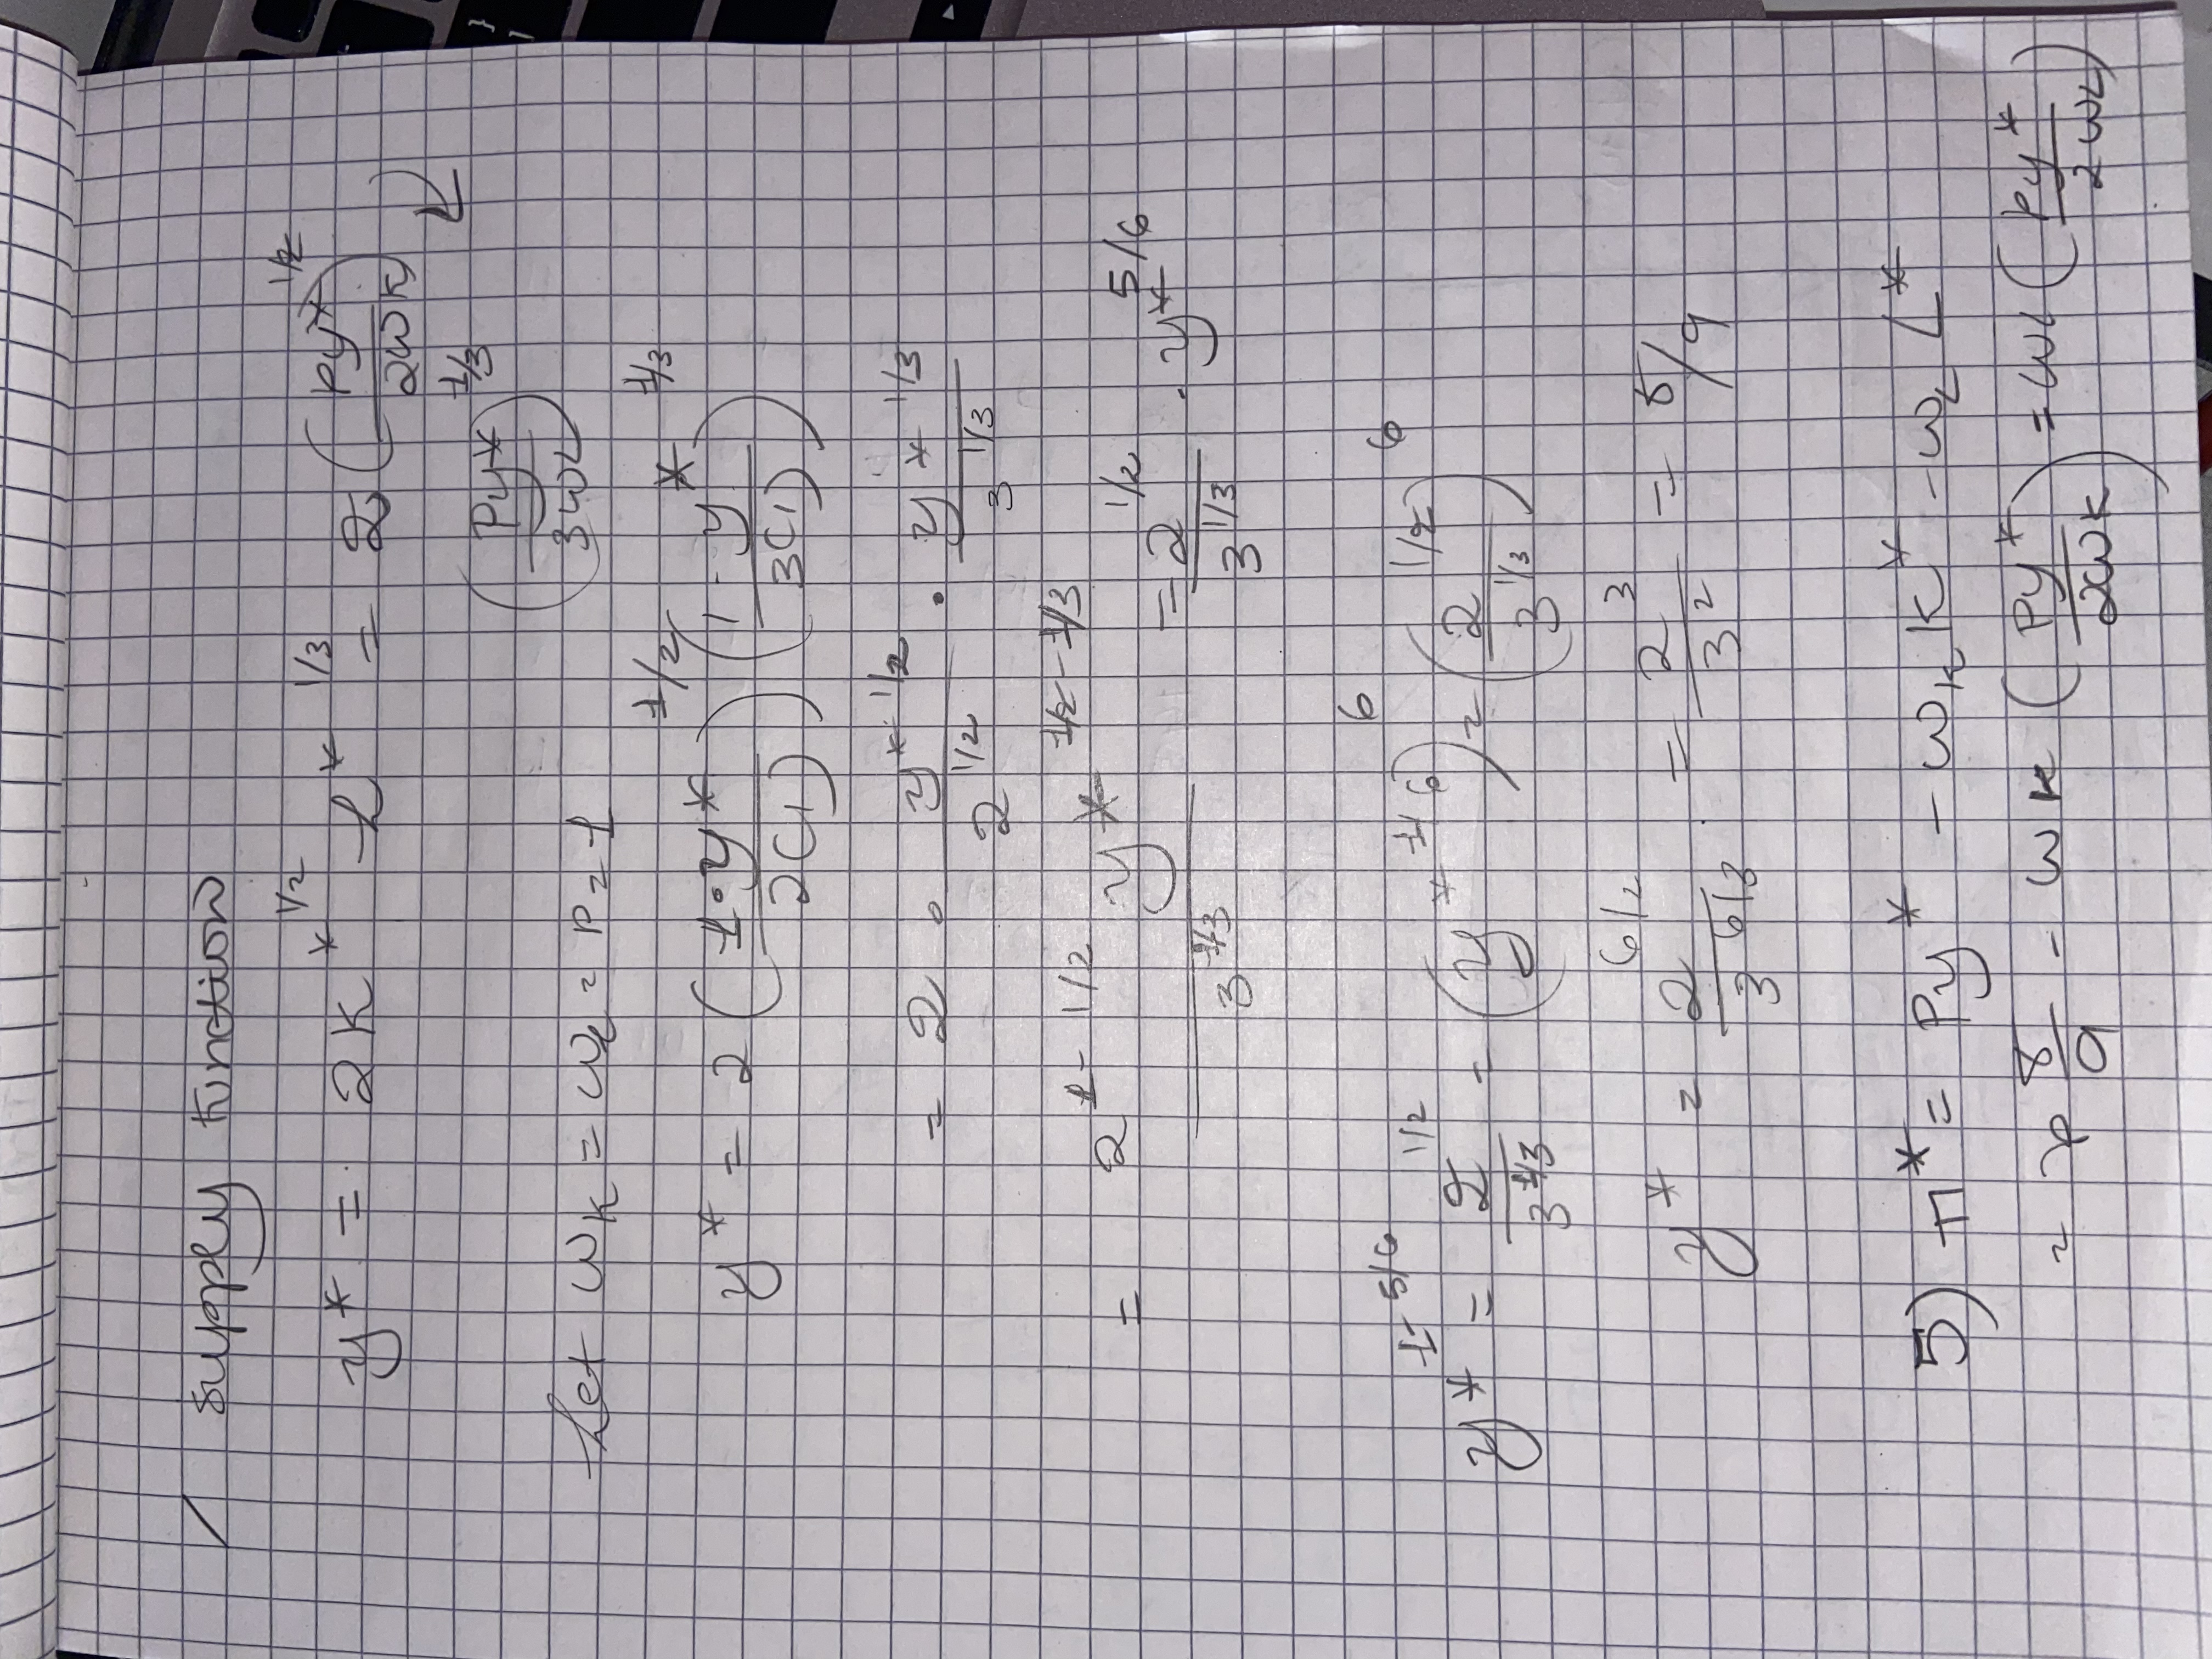 / Supply Function
y* = 2K*^1/2 L*^1/3 = 2 (Py*/2wK)^1/2
(Py*/3wL)^1/3
Let wK = wL = P = 1
y* = 2 (1·y*/2(1))^1/2 (1·y*/3(1))^1/3
= 2 · y*^1/2/2^1/2 · y*^1/3/3^1/3
= 2^1-1/2 y*^1/2-1/3/3^1/3 = 2^1/2/3^1/3 · y*^5/6
y*^1-5/6 = 2^1/2/3^1/3 - (y*^1/6)^6 = (2^1/2/3^1/3)^6
y* = 2^6/2/3^6/3 = 2^3/3^2 = 8/9
5) Π* = Py* - wK K* - wL L*
= P 8/9 - wK (Py*/2wK) = wL (Py*/2wL)